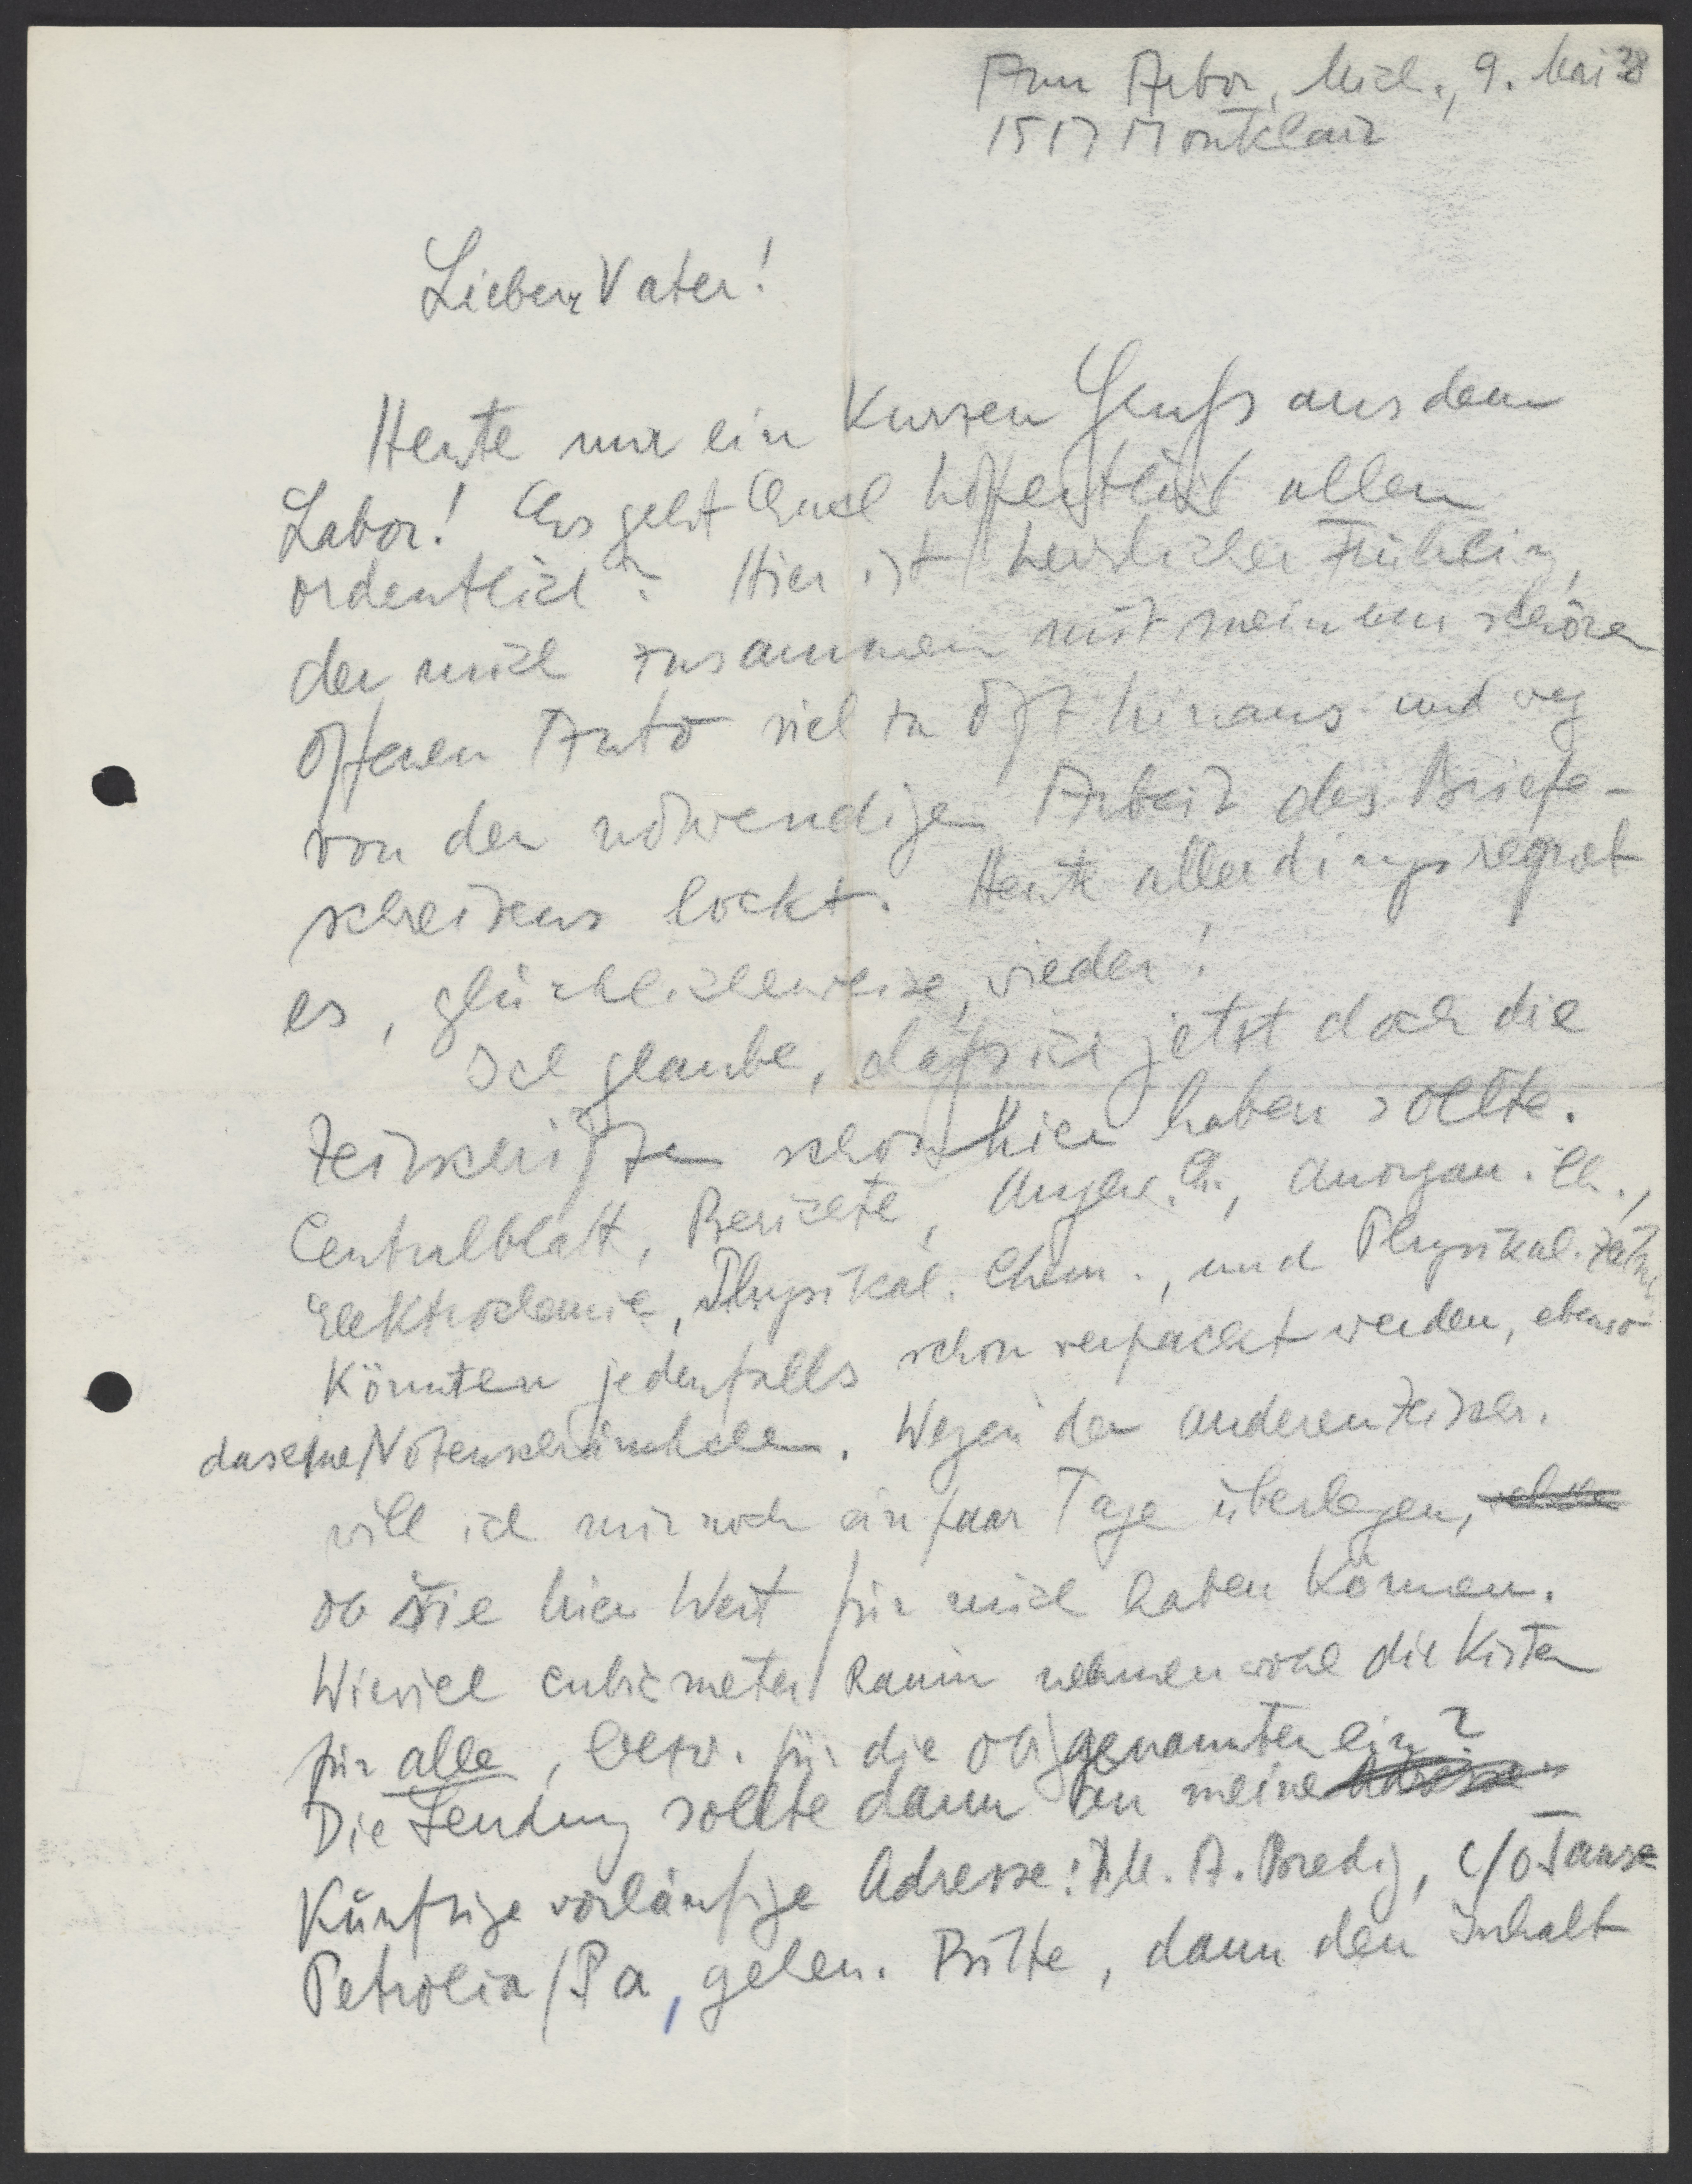 Ann Arbor, Mich., 9. Mai 38
1517 Montclair
Lieber Vater!
Heute nur ein kurzen Gruß aus dem
Labor! Es geht Euch hoffentlich allen
ordentlich? Hier ist herrlicher Frühling,
der mich zusammen mit meinem schönen
offenen Auto viel zu oft hinaus und weg
von der notwendigen Arbeit des Briefe-
schreibens lockt. Heute allerdings regnet
es, glücklicherweise, wieder!
Ich glaube, daß ich jetzt doch die
Zeitschriften schon hier haben sollte.
Centralblatt, Berichte, Angew. Ch., Anorgan. Ch.,
Elektrochemie, Physikal. Chem., und Physikal. Zeitschr.
könnten jedenfalls schon verpackt werden, ebenso
das eine Notenschränkchen. Wegen der anderen Zeitschr.
will ich mir noch ein paar Tage überlegen,
ob sie hier Wert für mich haben können.
Wieviel cubicmeter Raum nehmen wohl die Kisten
für alle, bezw. für die obigenannten ein?
Die Sendung sollte dann an meine Adresse
künftige vorläufige Adresse: M. A. Bredig, c/o
Petrolia/Pa, gehen. Bitte, dann den Inhalt